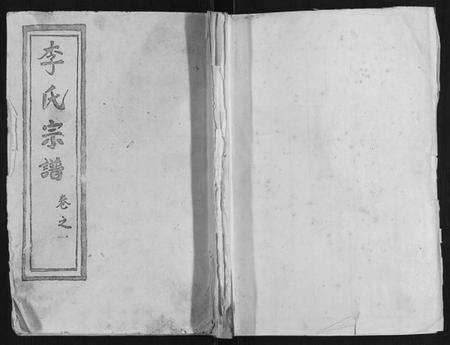 李氏宗譜
卷之一